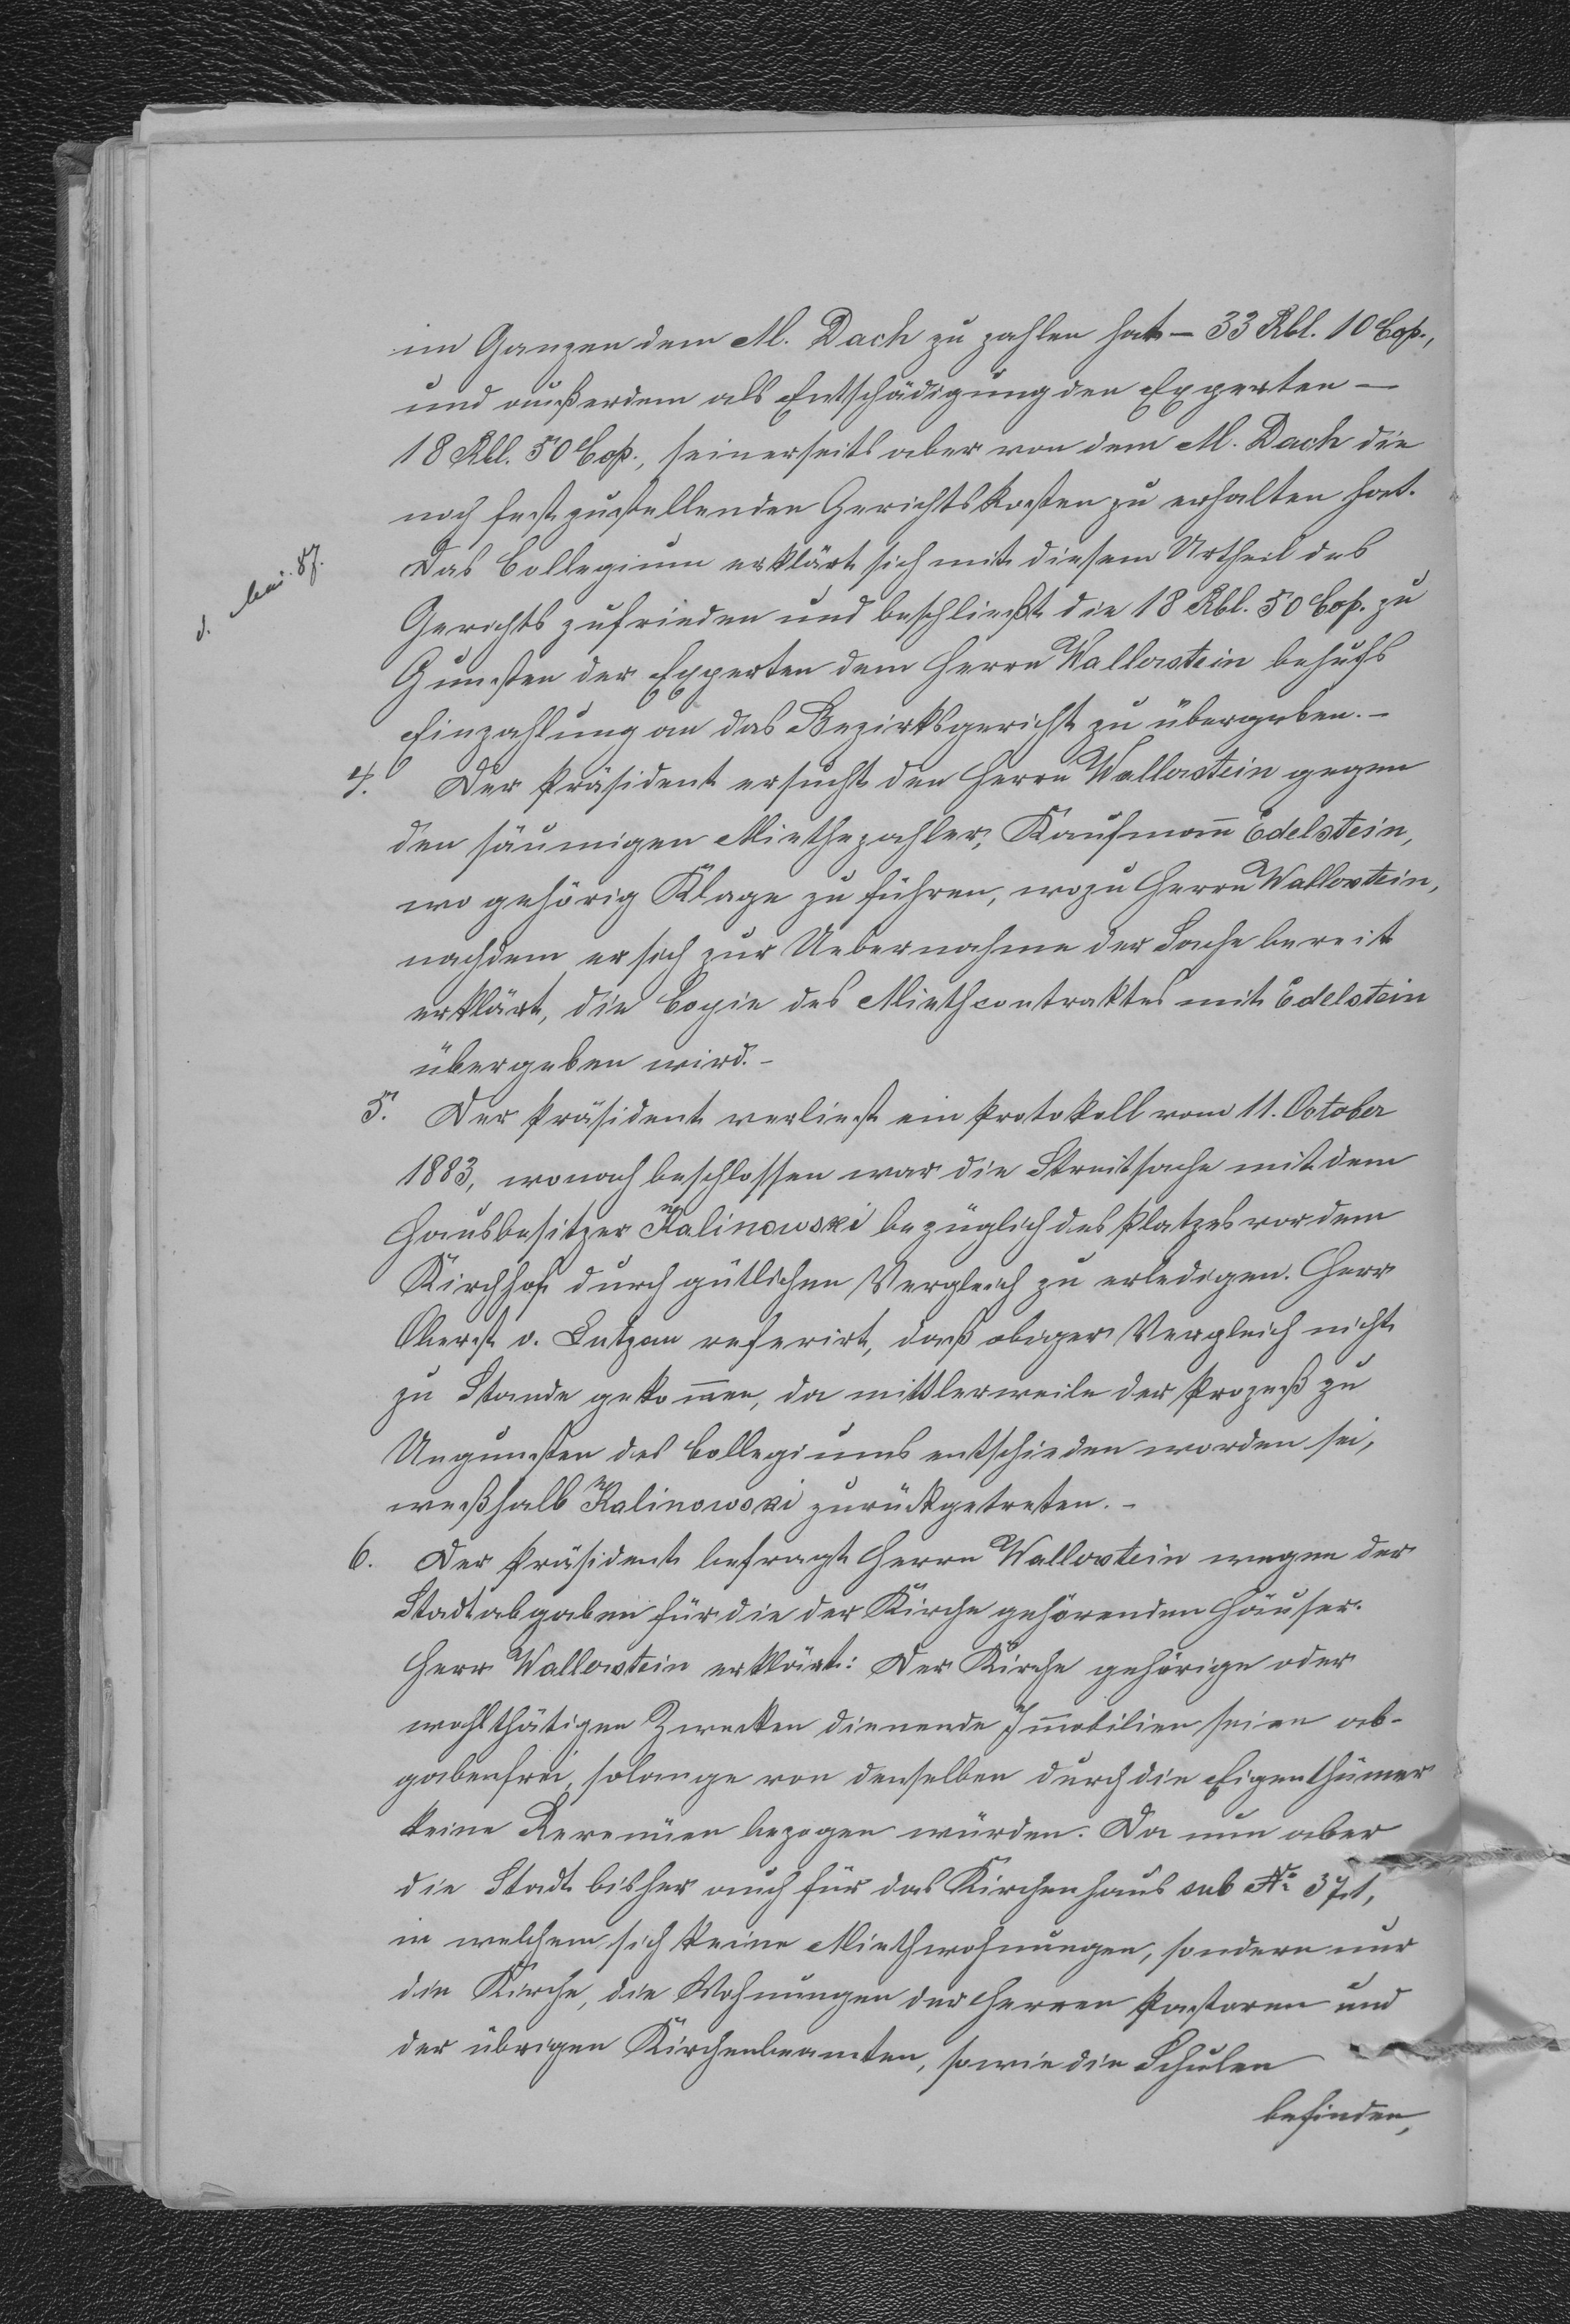 im Ganzen dem M. Dach zu zahlen hat – 33 Rbl. 10 Cop.,
und außerdem als Entschädigung den Experten –
18 Rbl. 50 Cop., seinerseits aber von dem M. Dach die
noch festzustellenden Gerichtskosten zu erhalten hat.
Das Collegium erklärt sich mit diesem Urtheil des
Gerichts zufrieden und beschließt die 18 Rbl. 50 Cop. zu
Gunsten der Experten dem Herrn Wallerstein behufs
Einzahlung an das Bezirksgericht zu übergeben. –
4. Der Präsident ersucht den Herrn Wallerstein gegen
den säumigen Miethezahler, Kaufmañ Edelstein,
wo gehörig Klage zu führen, wozu Herrn Wallerstein,
nachdem er sich zur Uebernahme der Sache bereit
erklärt, die Copie des Miethcontraktes mit Edelstein
übergeben wird. –
5. Der Präsident verliest ein Protokoll vom 11. October
1883, wonach beschlossen war die Streitsache mit dem
Hausbesitzer Kalinowski bezüglich des Platzes vor dem
Kirchhof durch gütlichen Vergleich zu erledigen. Herr
Oberst v. Lutzau referirt, daß obiger Vergleich nicht
zu Stande gekom̄en, da mittlerweile der Prozeß zu
Ungunsten des Collegiums entschieden worden sei,
weßhalb Kalinowski zurückgetreten. –
6. Der Präsident befragt Herrn Wallerstein wegen der
Stadtabgaben für die der Kirche gehörenden Häuser.
Herr Wallerstein erklärt: Der Kirche gehörige oder
wohlthätigen Zwecken dienende Im̄obilien seien ab-
gabenfrei, solange von denselben durch die Eigenthümer
keine Revenüen bezogen würden. Da nun aber
die Stadt bisher auch für das Kirchenhaus sub № 371,
in welchem sich keine Miethwohnungen, sondern nur
die Kirche, die Wohnungen der Herren Pastoren und
der übrigen Kirchenbeamten, sowie die Schulen
befinden,